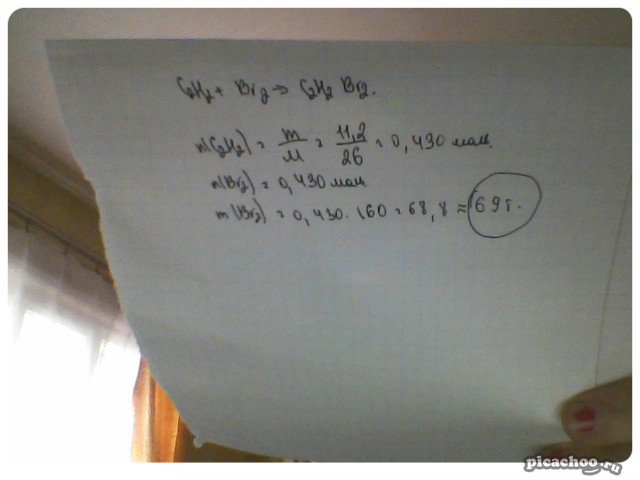 C2H2 + Br2 → C2H2 Br2.
n(C2H2) = m/M = 11,2/26 = 0,430 моль.
n(Br2) = 0,430 моль
m(Br2) = 0,430 · 160 = 68,8 ≈ 69г.
picachoo.ru